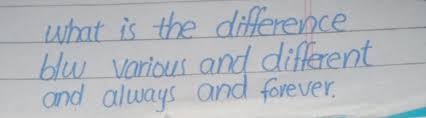 what is the difference
b/w various and different
and always and forever.